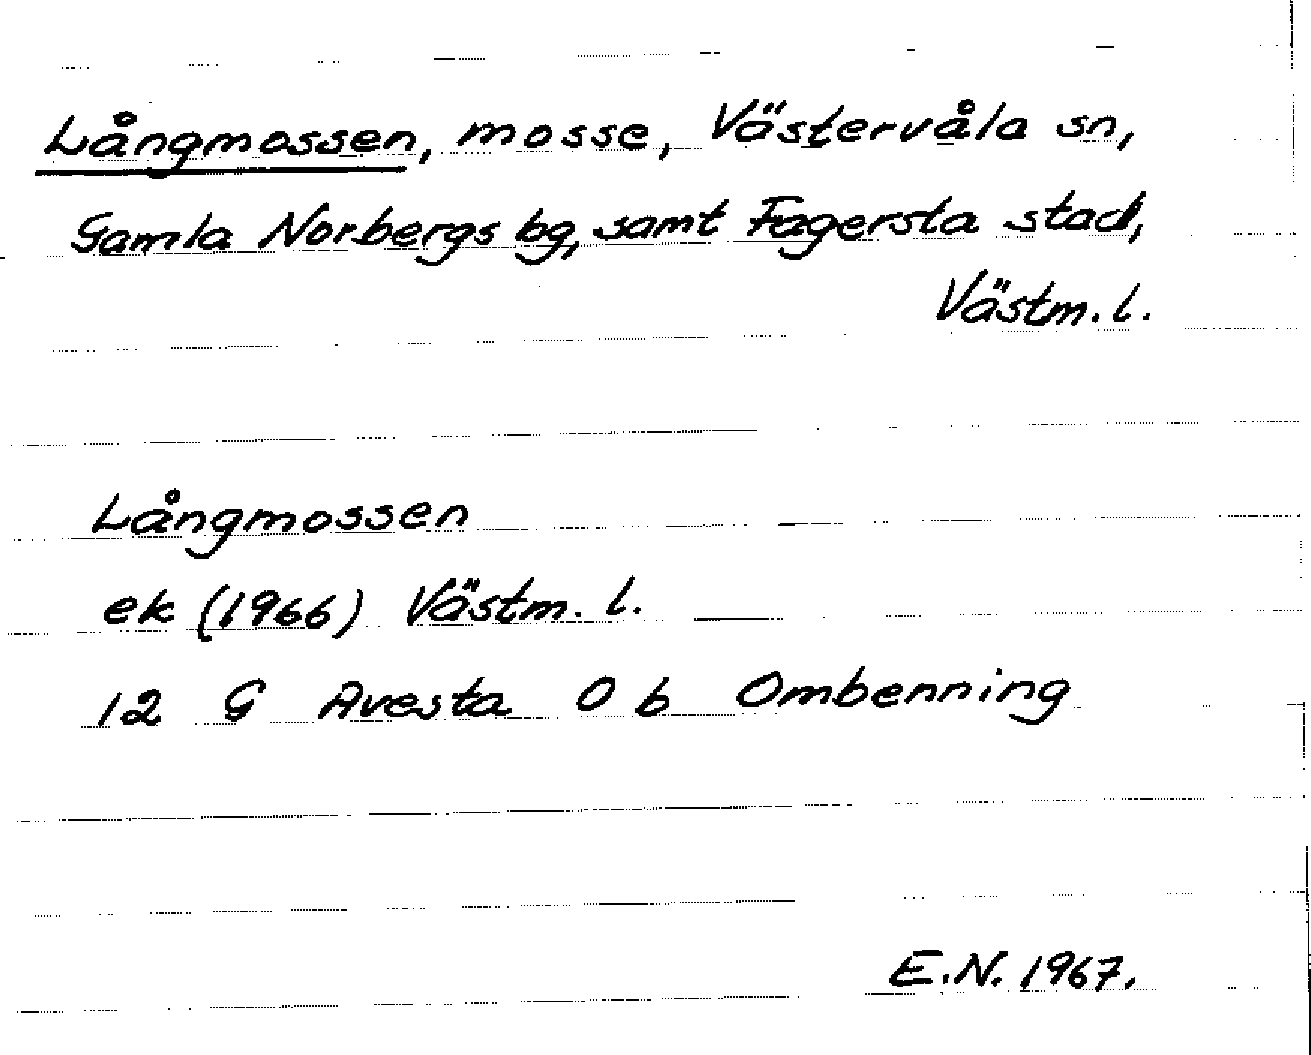 Långmossen, mosse, Västervåla sn,
Gamla Norbergs bg, samt Fagersta stad,
Västm. l.
Långmossen
ek (1966) Västm. l.
12 G Avesta 0 b Ombenning
E.N. 1967.